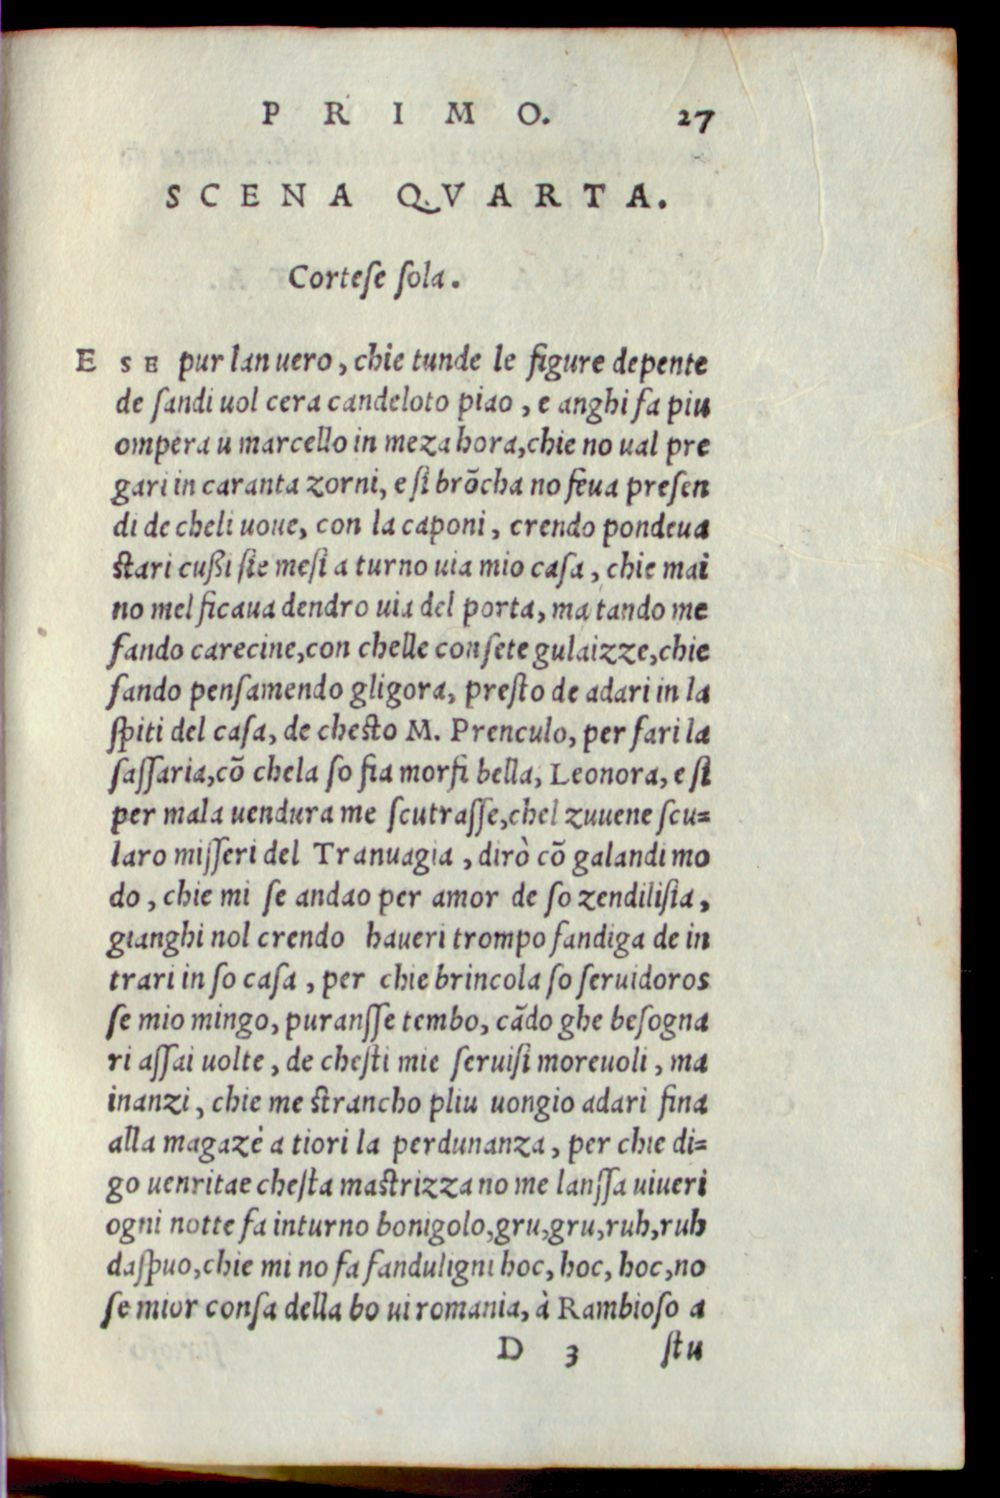 PRIMO. 27
SCENA QVARTA.
Corteſe ſola.
E SE pur lan uero, chie tunde le figure depente
de ſandi uol cera candeloto piao, e anghi fa piu
ompera u marcello in meza hora, chie no ual pre
gari in caranta zorni, e ſi brõcha no feua preſen
di de cheli uoue, con la caponi, crendo pondeua
ſtari cußi ſie meſi a turno uia mio caſa, chie mai
no mel ficaua dendro uia del porta, ma tando me
fando carecine, con chelle conſete gulaizze, chie
fando penſamendo gligora, preſto de adari in la
ſpiti del caſa, de cheſto M. Prenculo, per fari la
ſaſſaria, cõ chela ſo fia morfi bella, Leonora, e ſi
per mala uendura me ſcutraſſe, chel zuuene ſcu=
laro miſſeri del Tranuagia, dirò cõ galandi mo
do, chie mi ſe andao per amor de ſo zendiliſia,
gianghi nol crendo haueri trompo fandiga de in
trari in ſo caſa, per chie brincola ſo ſeruidoros
ſe mio mingo, puranſſe tembo, cãdo ghe beſogna
ri aſſai uolte, de cheſti mie ſeruiſi moreuoli, ma
inanzi, chie me ſtrancho pliu uongio adari fina
alla magazè a tiori la perdunanza, per chie di=
go uenritae cheſta maſtrizza no me lanſſa uiueri
ogni notte fa inturno bonigolo, gru, gru, ruh, ruh
daſpuo, chie mi no fa fanduligni hoc, hoc, hoc, no
ſe mior conſa della bo ui romania, à Rambioſo a
D 3 ſtu